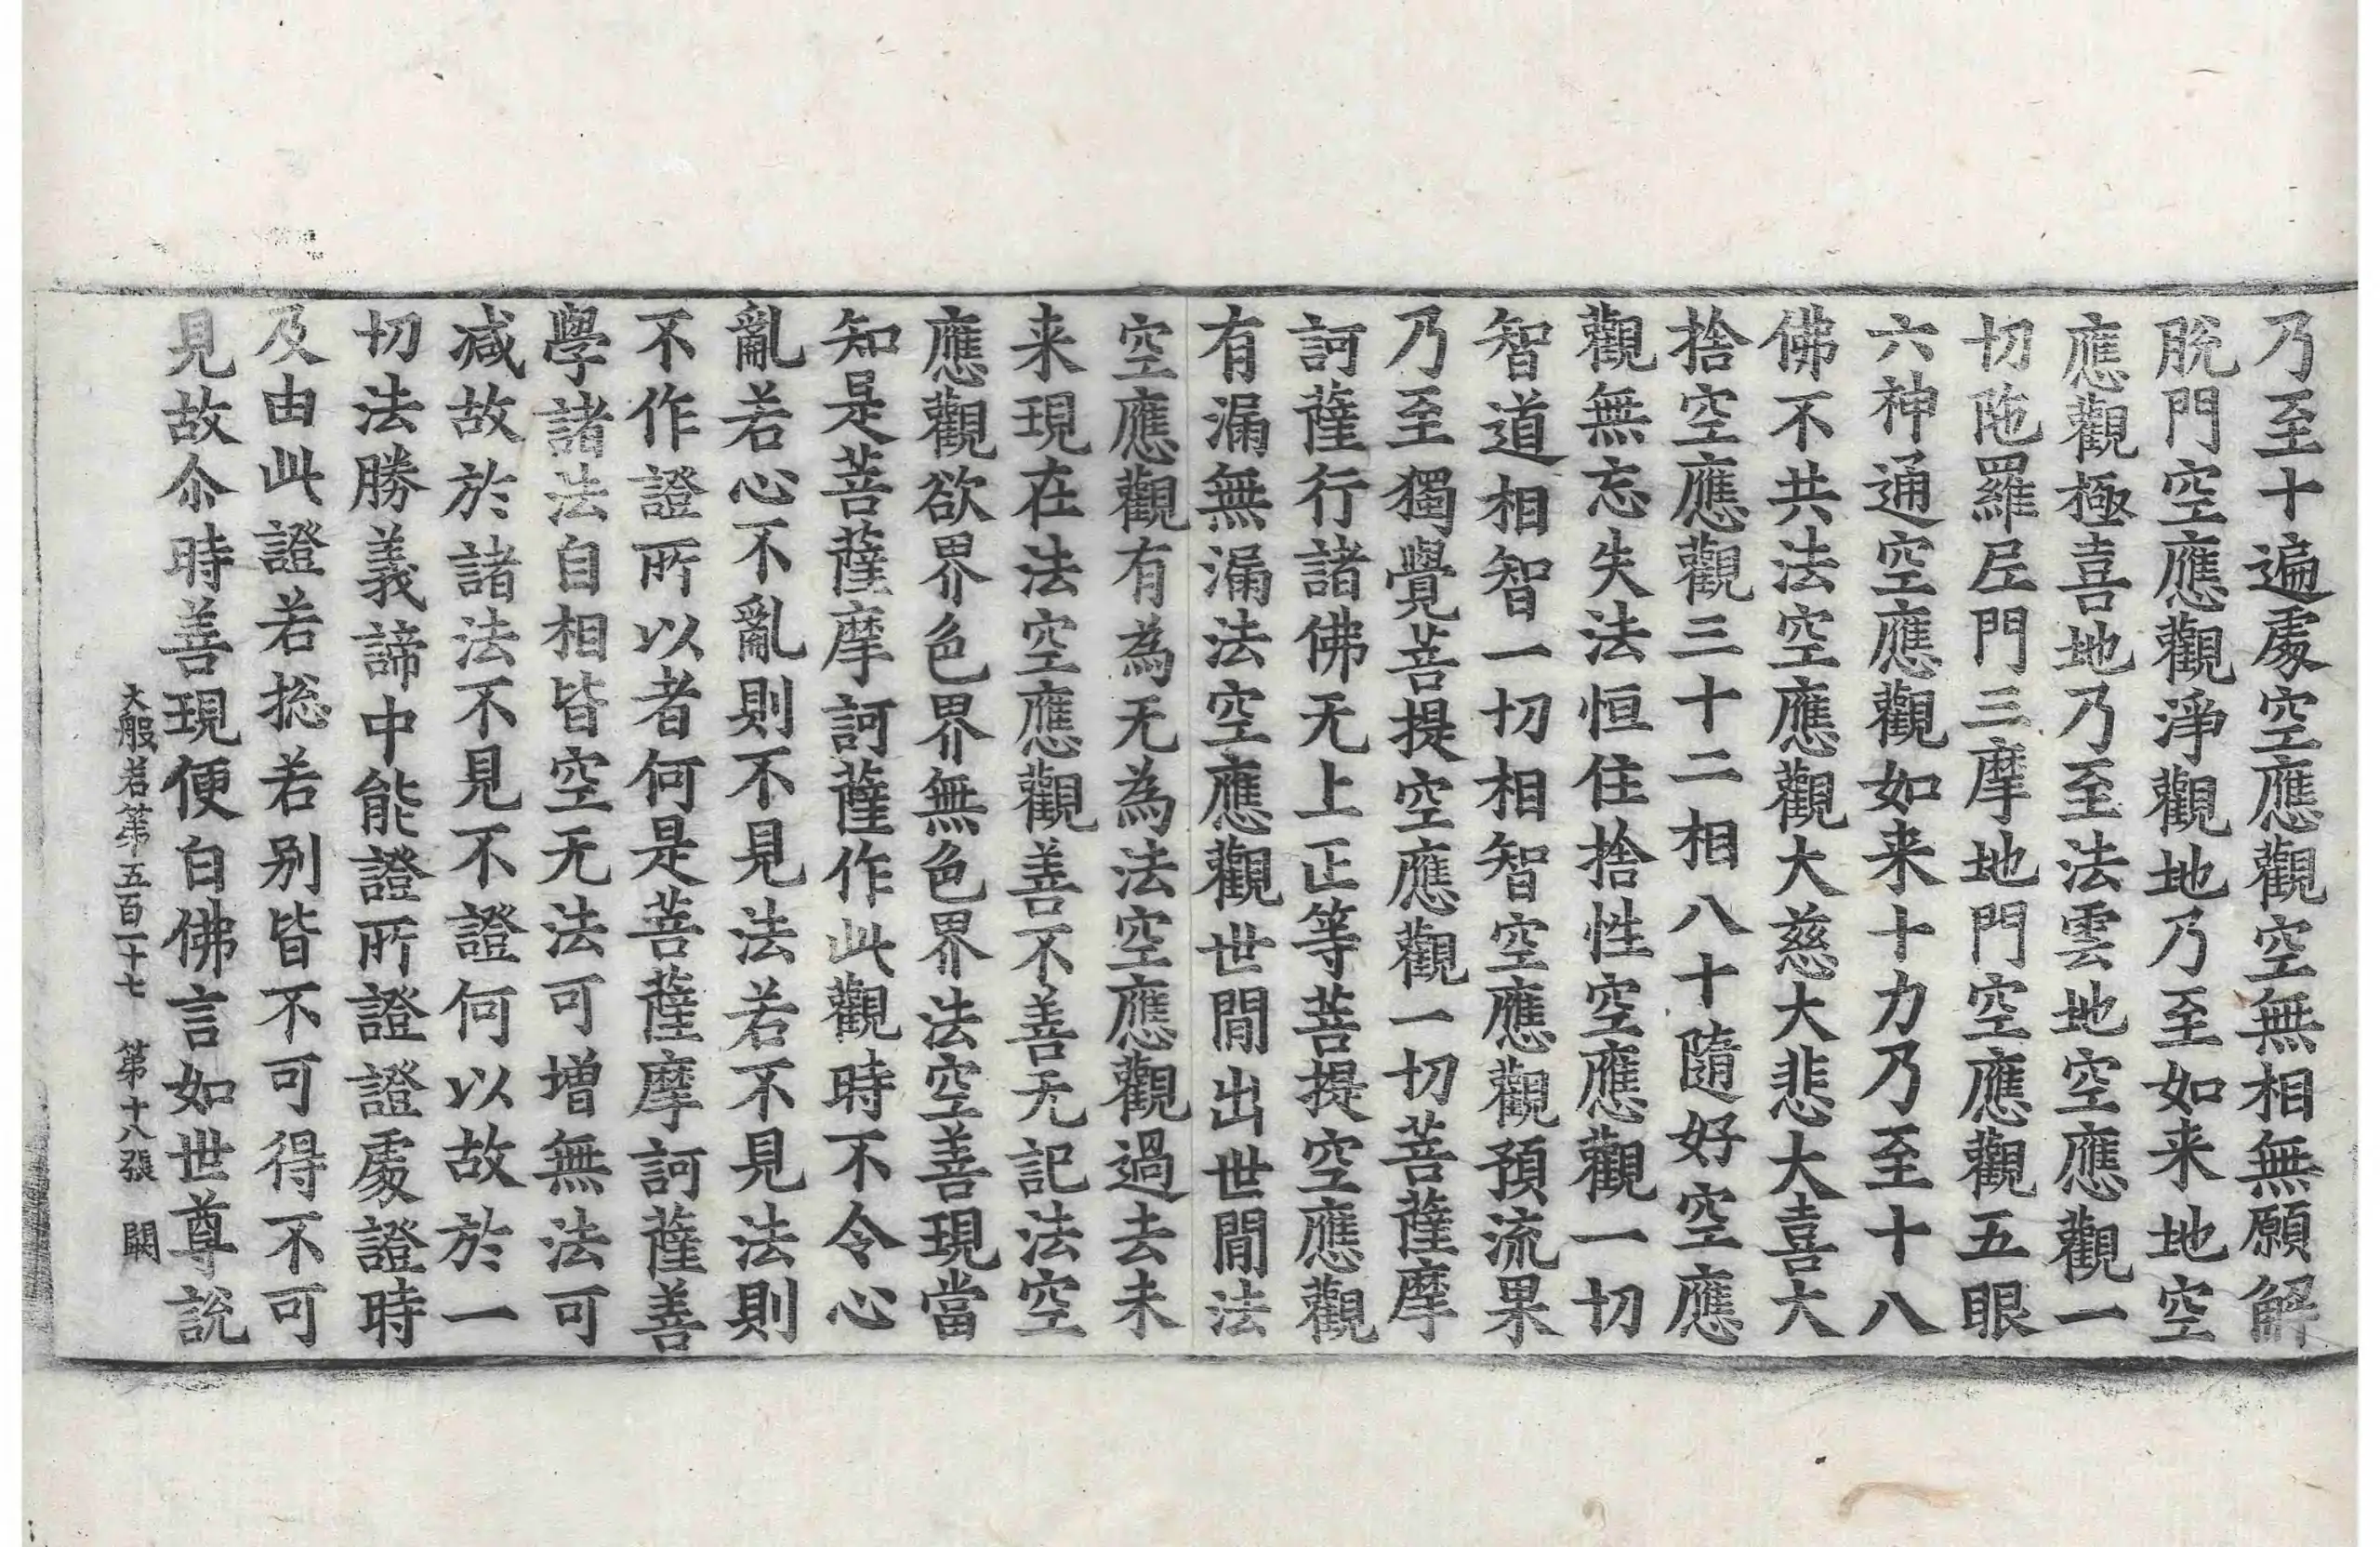 乃至十遍處空應觀空無相無願解
脫門空應觀淨觀地乃至如来地空
應觀極喜地乃至法雲地空應觀一
切陁羅尼門三摩地門空應觀五眼
六神通空應觀如来十力乃至十八
佛不共法空應觀大慈大悲大喜大
捨空應觀三十二相八十隨好空應
觀無忘失法恒住捨性空應觀一切
智道相智一切相智空應觀預流果
乃至獨覺菩提空應觀一切菩薩摩
訶薩行諸佛无上正等菩提空應觀
有漏無漏法空應觀世閒出世閒法
空應觀有為无為法空應觀過去未
来現在法空應觀善不善无記法空
應觀欲界色界無色界法空善現當
知是菩薩摩訶薩作此觀時不令心
亂若心不亂則不見法若不見法則
不作證所以者何是菩薩摩訶薩善
學諸法自相皆空无法可增無法可
减故於諸法不見不證何以故於一
切法勝義諦中能證所證證處證時
及由此證若揔若别皆不可得不可
見故尒時善現便白佛言如世尊說
大般若第五百一十七 第十八張 闕